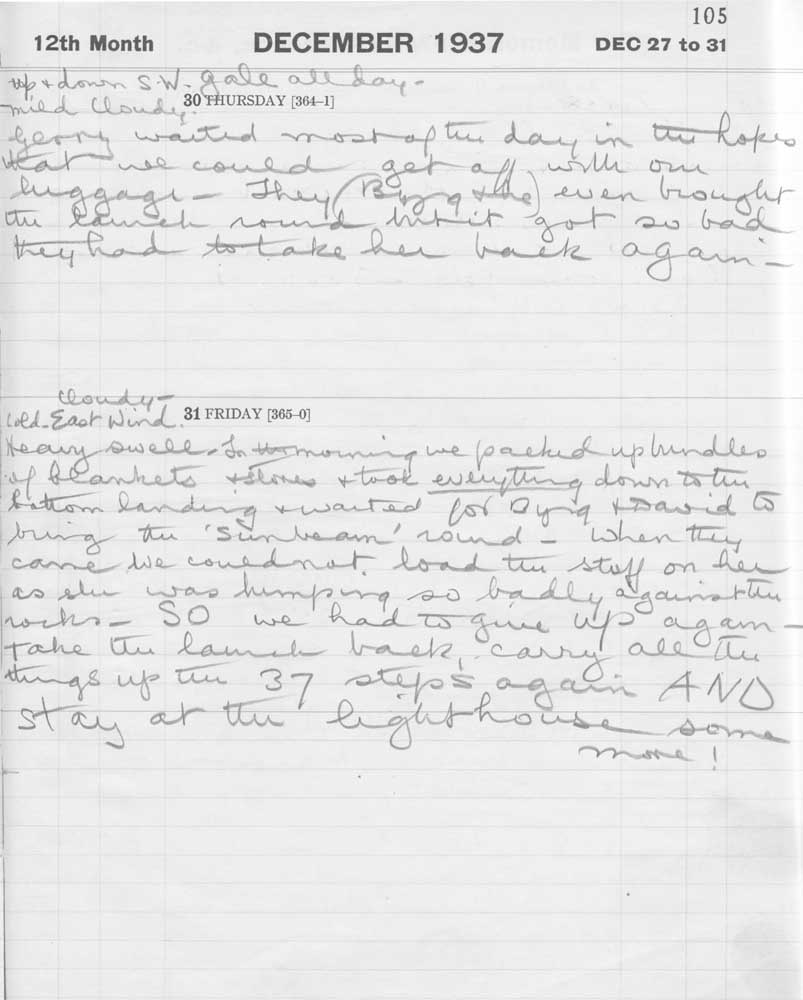 105
12th Month DECEMBER 1937 DEC 27 to 31
up + down S.W. gale all day -
mild Cloudy.
30 THURSDAY [364-1]
Gerry waited most of the day in the hopes
that we could get off with our
luggage - They (Byng + he) even brought
the launch round but it got so bad
they had to take her back again -
Cloudy -
Cold East Wind. 31 FRIDAY [365-0]
Heavy swell. In the morning we packed up bundles
of blankets + stores + took everything down to the
bottom landing + waited for Byng + David to
bring the 'Sunbeam' round - When they
came we could not load the stuff on her
as she was bumping so badly against the
rocks - SO we had to give up again -
take the launch back, carry all the
things up the 37 steps again AND
stay at the lighthouse some
more!